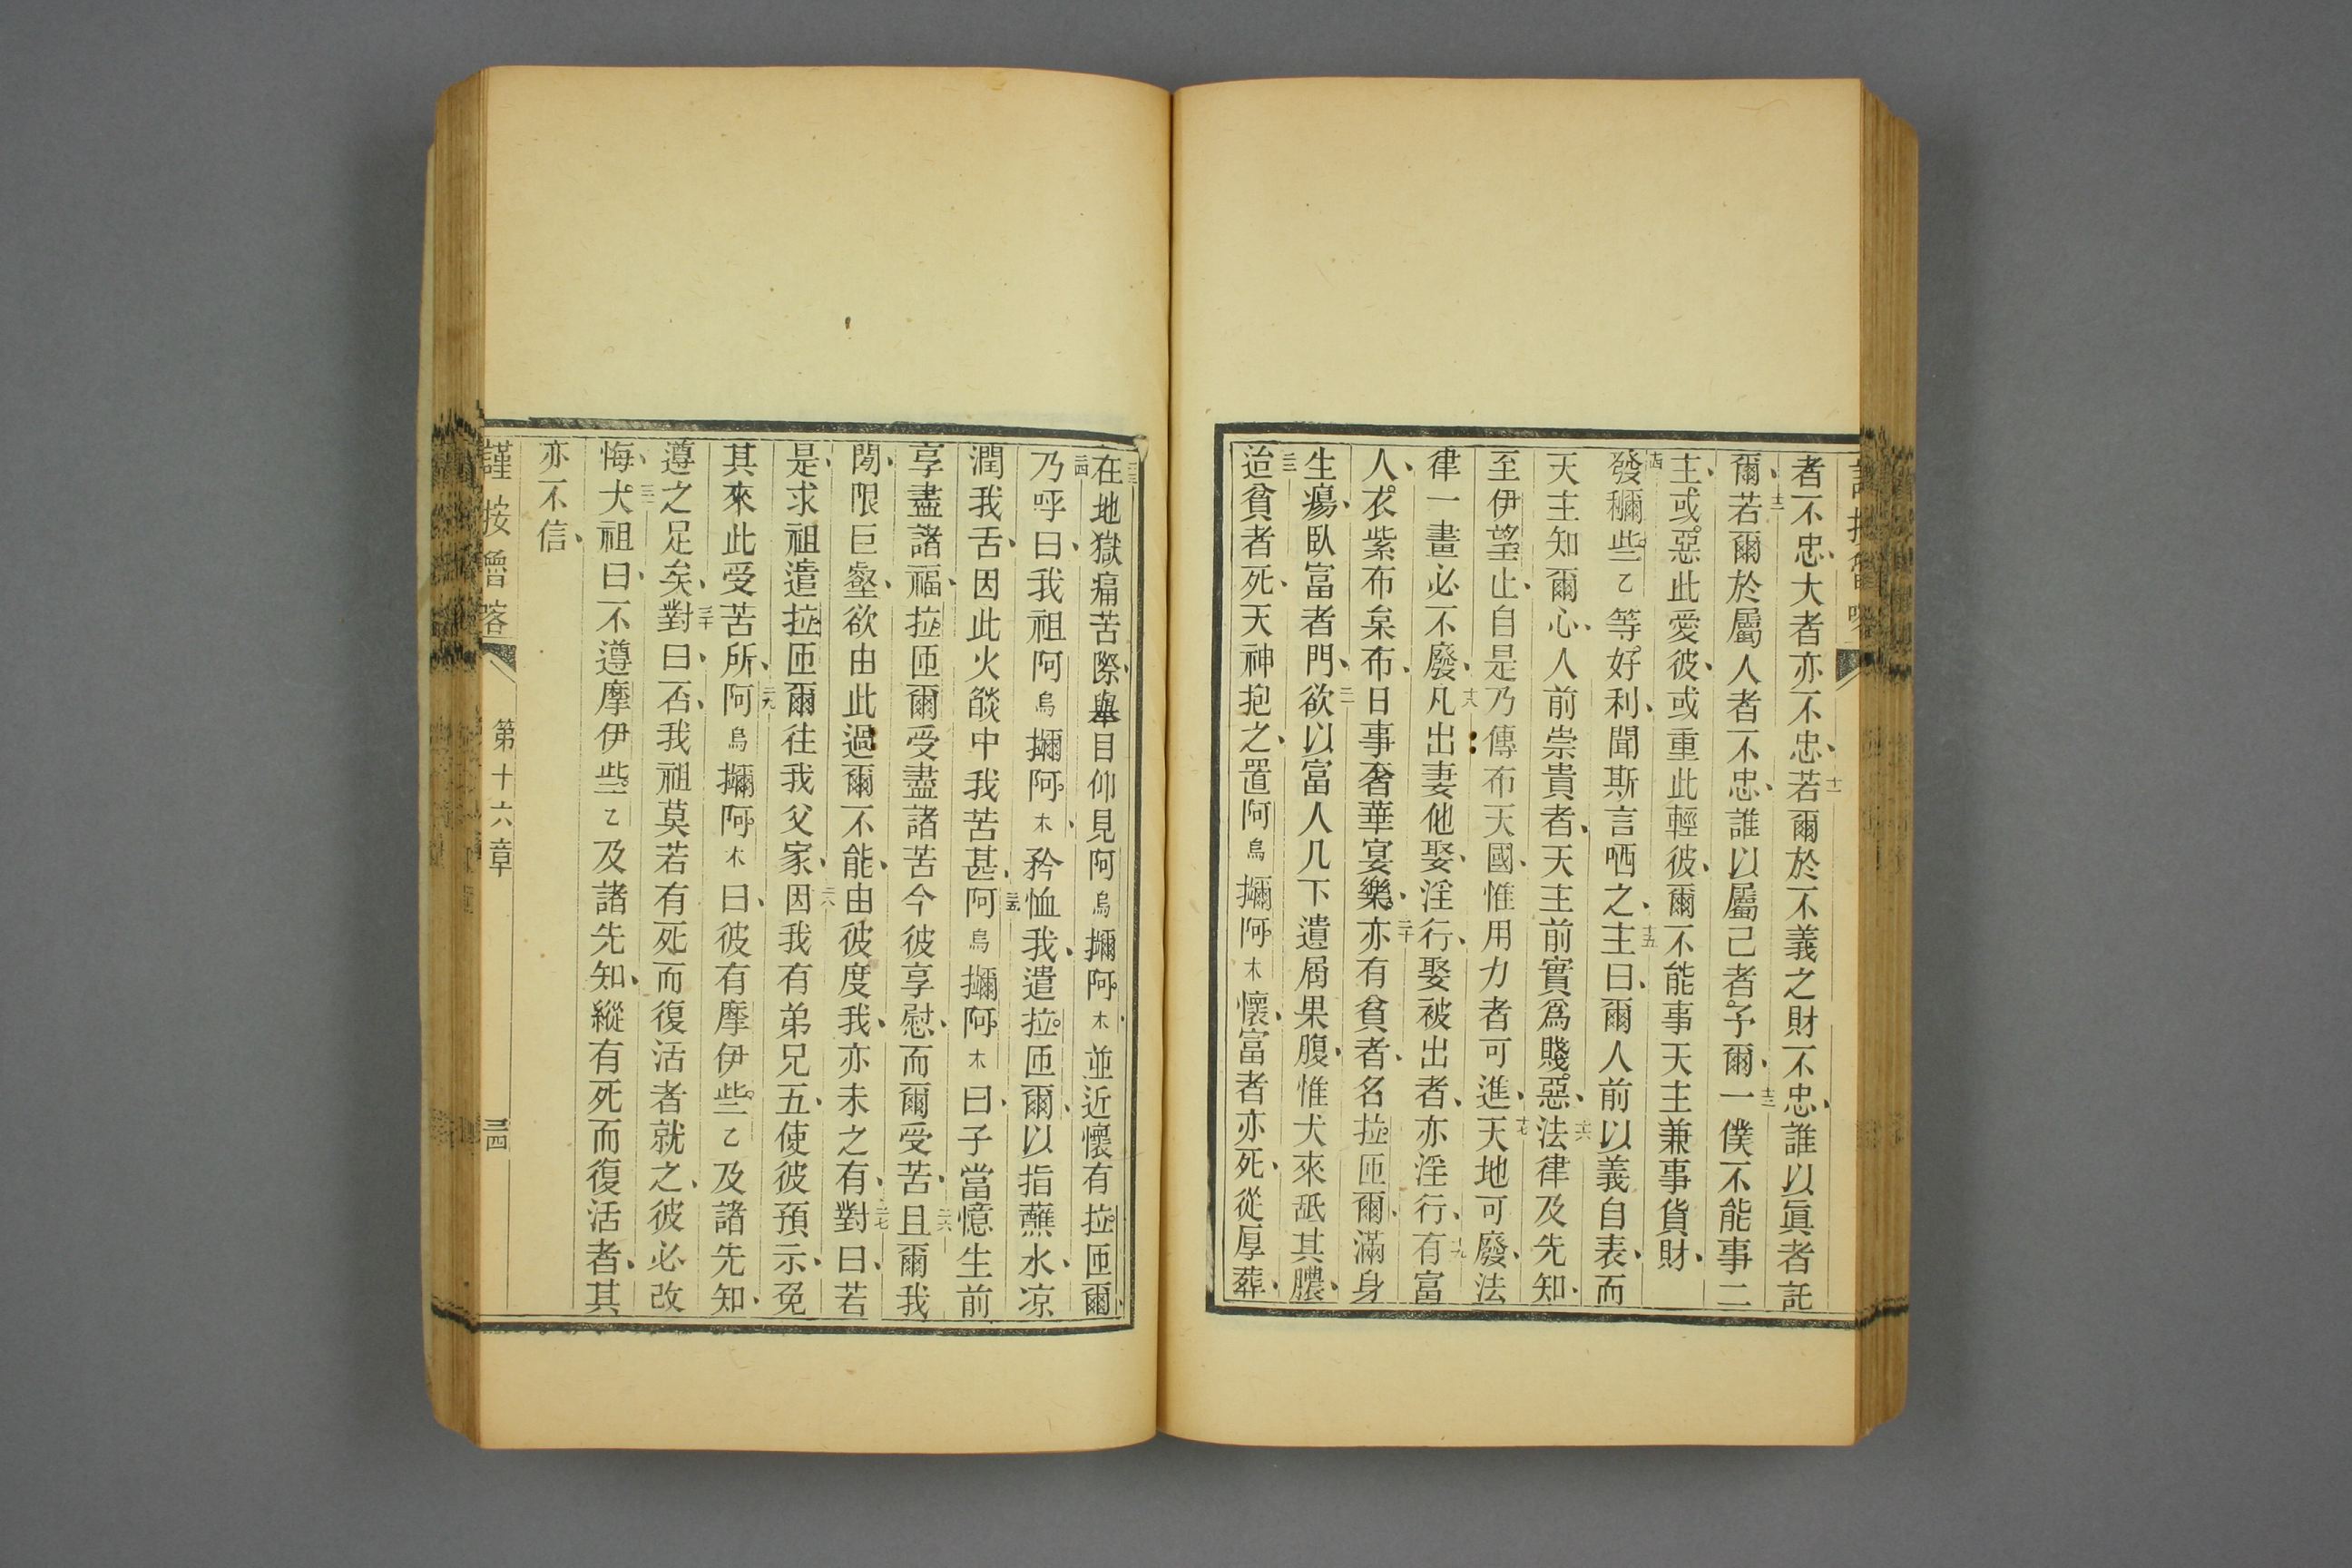 者不忠、大者亦不忠、十一若爾於不義之財不忠、誰以眞者託
爾、十二若爾於屬人者不忠、誰以屬己者予爾、十三一僕不能事二
主、或惡此愛彼、或重此輕彼、爾不能事天主兼事貨財、
十四發穪些乙等好利、聞斯言哂之、十五主曰、爾人前以義自表、而
天主知爾心、人前崇貴者、天主前實爲賤惡、十六法律及先知、
至伊望止、自是乃傳布天國、惟用力者可進、十七天地可廢、法
律一畫必不廢、十八凡出妻他娶、淫行、娶被出者、亦淫行、十九有富
人、衣紫布枲布、日事奢華宴樂、二十亦有貧者、名拉匝爾、滿身
生瘍、臥富者門、二一欲以富人几下遺屑果腹、惟犬來舐其膿、
二二迨貧者死、天神抱之、置阿烏攡阿木懷、富者亦死、從厚葬、
二三在地獄痛苦際、舉目仰見阿烏攡阿木、並近懷有拉匝爾、
二四乃呼曰、我祖阿烏攡阿木、矜恤我、遣拉匝爾、以指蘸水、凉
潤我舌、因此火燄中我苦甚、二五阿烏攡阿木曰、子當憶生前
享盡諸福、拉匝爾受盡諸苦、今彼享慰、而爾受苦、二六且爾我
間、限巨壑、欲由此過爾不能、由彼度我、亦未之有、二七對曰、若
是、求祖遣拉匝爾往我父家、二八因我有弟兄五、使彼預示、免
其來此受苦所、二九阿烏攡阿木曰、彼有摩伊些乙及諸先知、
遵之足矣、三十對曰、否、我祖、莫若有死而復活者就之、彼必改
悔、三一祖曰、不遵摩伊些乙及諸先知、縱有死而復活者、其
亦不信、
謹按魯喀
第十六章
三四